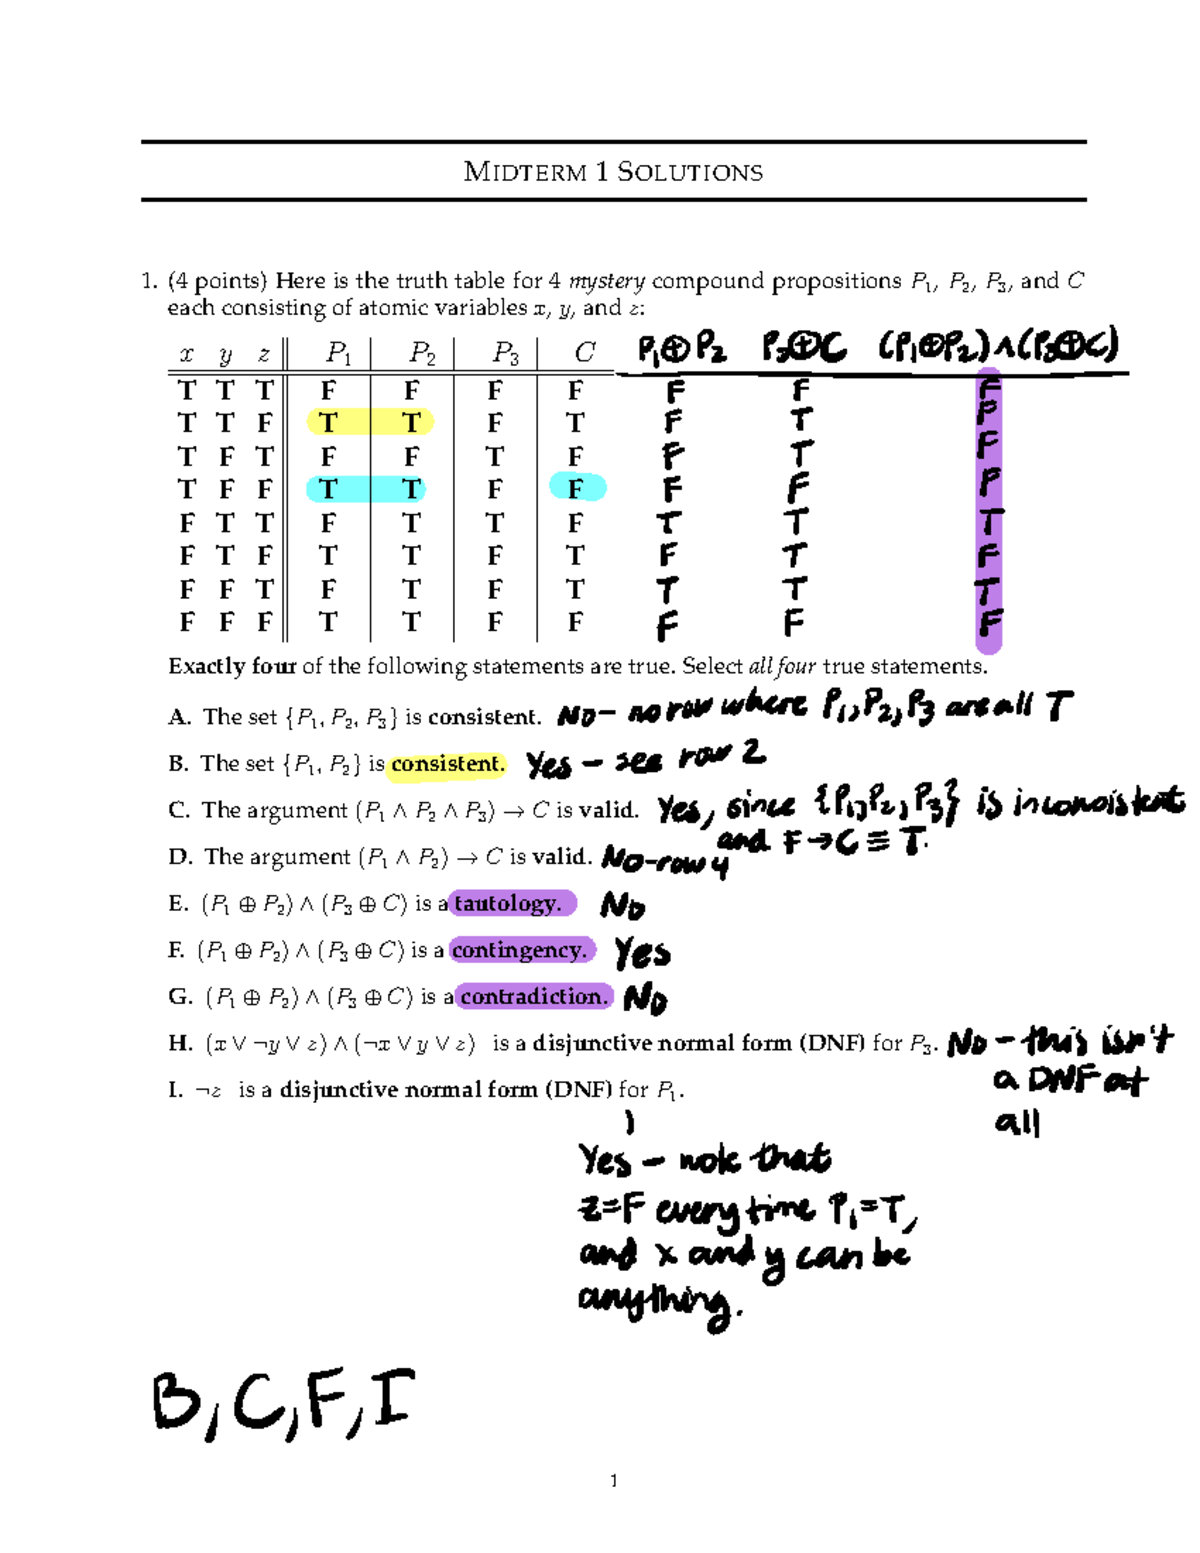 MIDTERM 1 SOLUTIONS
1. (4 points) Here is the truth table for 4 mystery compound propositions P₁, P₂, P₃, and C
each consisting of atomic variables x, y, and z:
x y z P₁ P₂ P₃ C P₁⊕P₂ P₃⊕C (P₁⊕P₂)∧(P₃⊕C)
T T T F F F F F F F
T T F T T F T F T F
T F T F F T F F T F
T F F T T F F F F F
F T T F T T F T T T
F T F T T F T F T F
F F T F T F T T T T
F F F T T F F F F F
Exactly four of the following statements are true. Select all four true statements.
A. The set {P₁, P₂, P₃} is consistent. No – no row where P₁, P₂, P₃ are all T
B. The set {P₁, P₂} is consistent. Yes – see row 2
C. The argument (P₁ ∧ P₂ ∧ P₃) → C is valid. Yes, since {P₁, P₂, P₃} is inconsistent
and F→C ≡ T.
D. The argument (P₁ ∧ P₂) → C is valid. No-row 4
E. (P₁ ⊕ P₂) ∧ (P₃ ⊕ C) is a tautology. No
F. (P₁ ⊕ P₂) ∧ (P₃ ⊕ C) is a contingency. Yes
G. (P₁ ⊕ P₂) ∧ (P₃ ⊕ C) is a contradiction. No
H. (x ∨ ¬y ∨ z) ∧ (¬x ∨ y ∨ z) is a disjunctive normal form (DNF) for P₃. No – this isn't
a DNF at
all
I. ¬z is a disjunctive normal form (DNF) for P₁.
Yes – note that
z=F every time P₁=T,
and x and y can be
anything.
B, C, F, I
1